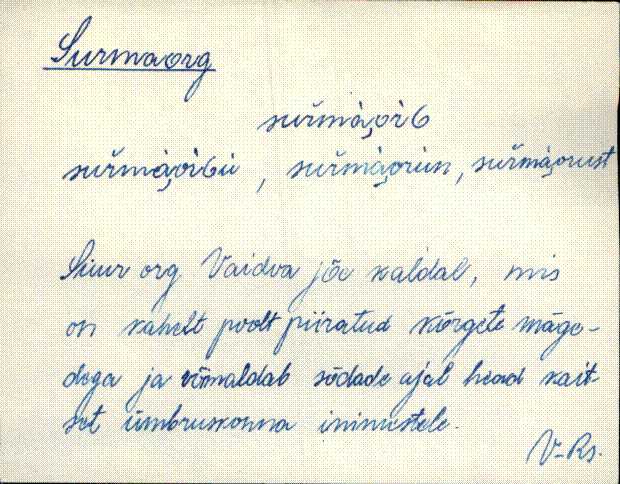 Surmaorg
sur̆mà̦òrG
sur̆mà̦òrGu, sur̆mà̦orun, sur̆mà̦orust
Suur org Vaidva jõe kaldal, mis
on kahelt poolt piiratud kõrgete mäge-
dega ja võimaldab sõdade ajal head kait-
set ümbruskonna inimestele.
V-Rs.